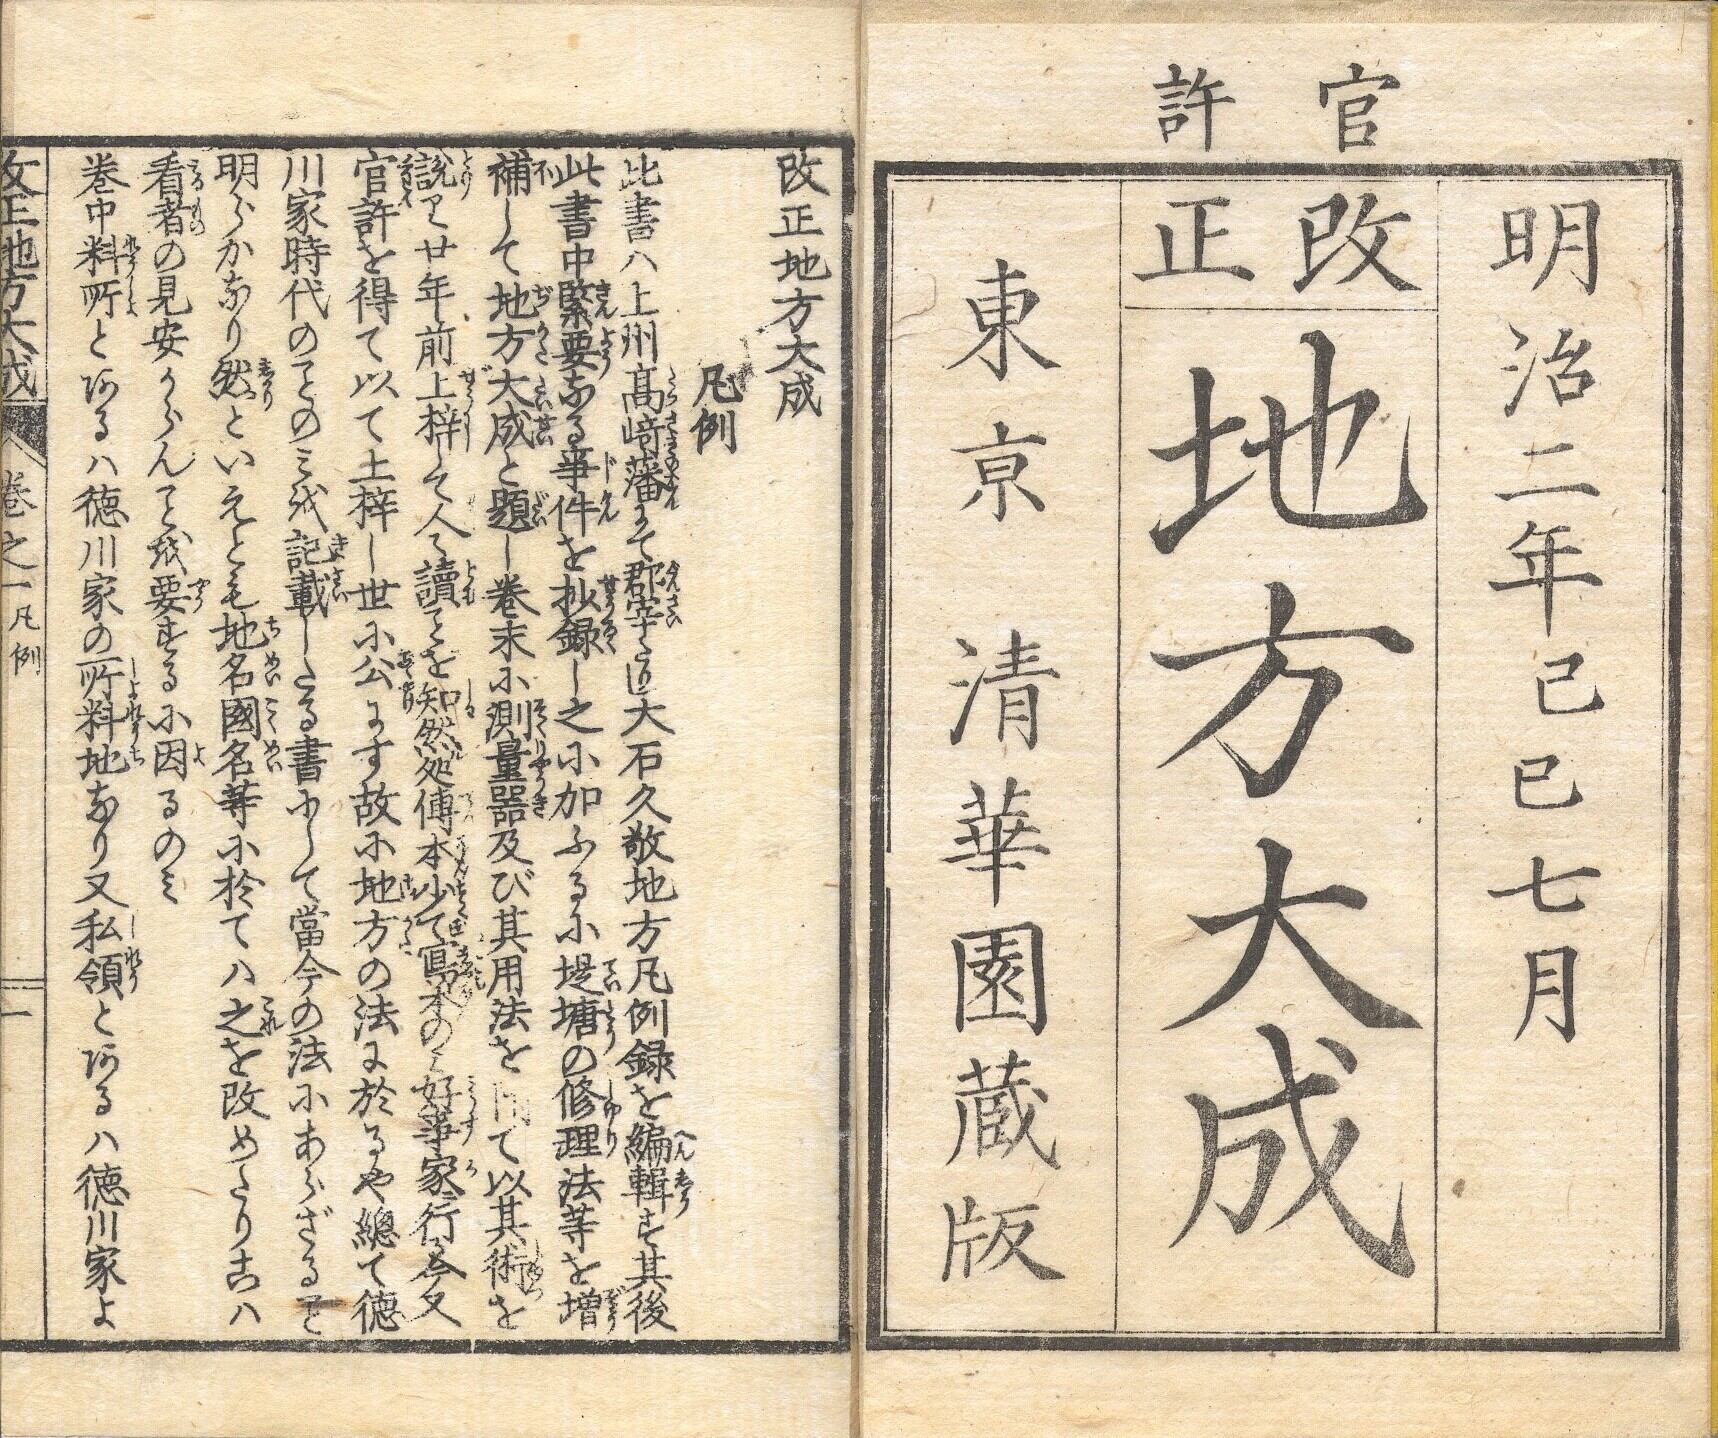 官許
明治二年己巳七月
改正
地方大成
東京 清華園蔵版
改正地方大成
凡例
此書ハ上州高崎藩にて郡宰たりし大石久敬地方凡例録を編輯す其後
此書中緊要なる事件を抄録し之に加ふるに堤塘の修理法等を増
補して地方大成と題し巻末に測量器及び其用法を て以其術を
説く廿年前上梓して人々讀ことを知然処傳本少て寫本のミ好事家行る今又
官許を得て以て上梓し世に公にす故に地方の法に於るや總て徳
川家時代のことのミを記載したる書にして當今の法にあらざること
明らかなり然といえども地名國名等に於てハ之を改めたり古ハ
看者の見安からんことを要するに因るのミ
巻中料所とあるハ徳川家の所料地なり又私領とあるハ徳川家よ
改正地方大成 巻之一 凡例 一